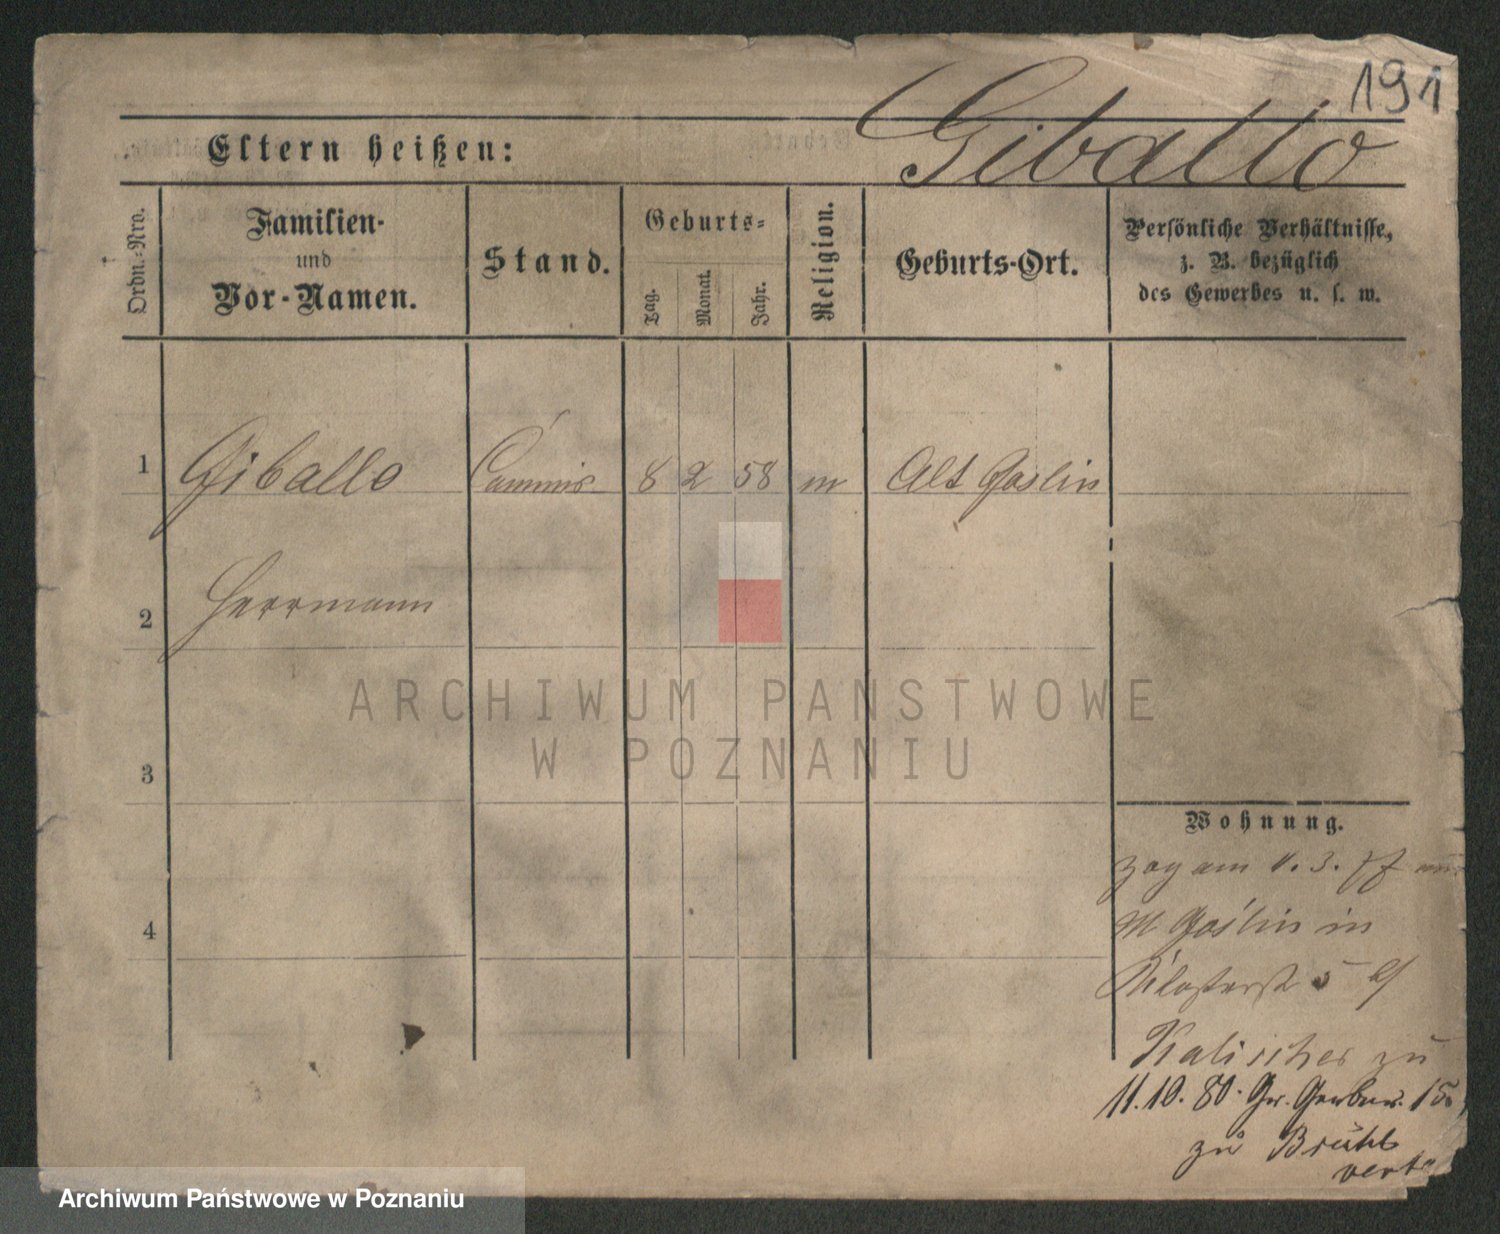 191
Giballo
Eltern heißen:
Ordn.-Nro.
Familien-
und
Vor-Namen.
Stand.
Geburts-
Tag.
Monat.
Jahr.
Religion.
Geburts-Ort.
Persönliche Verhältnisse,
z. B. bezüglich
des Gewerbes u. s. w.
1 Giballo Commis 8 2 58 m Alt Goslin
2 Herrmann
3
4
Wohnung.
zog am 3.
M Goślin in
Klosterstr 5
Kalischer zu
11.10.80. Gr. Gerber. 15
zu Brühl
verte
ARCHIWUM PAŃSTWOWE
W POZNANIU
Archiwum Państwowe w Poznaniu